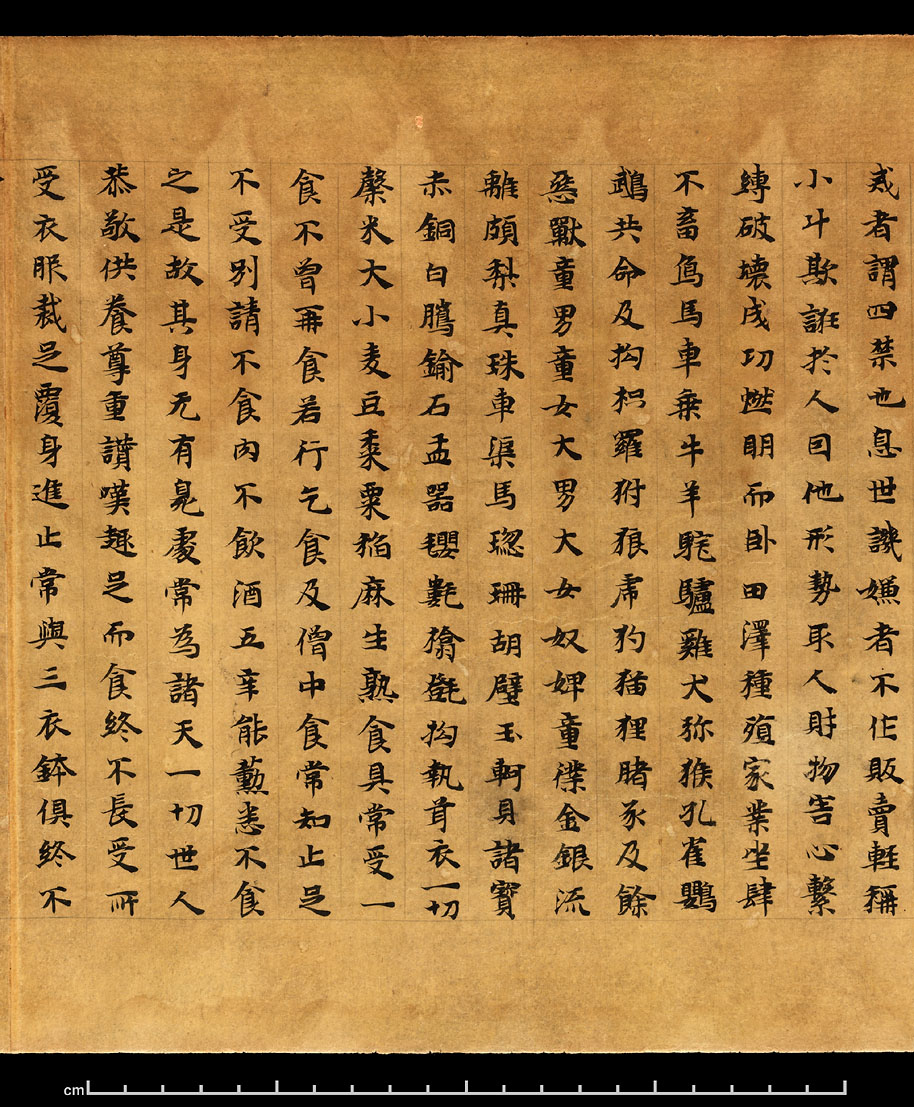 戒者謂四禁也息世譏嫌者不作販賣軽稱
小斗欺誑扵人因他形勢取人財物害心繫
縛破壞成功燃明而卧田澤種殖家業坐肆
不畜鳥馬車乗牛羊駝驢雞犬猕猴孔雀鸚
鵡共命及拘枳羅豺狼席豹猫狸賭豕及餘
惡獸童男童女大男大女奴婢童僕金銀流
離頗梨真珠車渠馬瑙珊胡璧玉軻貝諸寶
赤銅白鑞鍮石盂器氍毹毾㲪拘執茸衣一切
穀米大小麦豆黍粟稻麻生熟食具常受一
食不曾再食若行乞食及僧中食常知止足
不受别請不食肉不飲酒五辛能勳悉不食
之是故其身无有臭處常為諸天一切世人
恭敬供養尊重讃嘆趣足而食終不長受所
受衣服裁足覆身進止常與三衣鉢俱終不